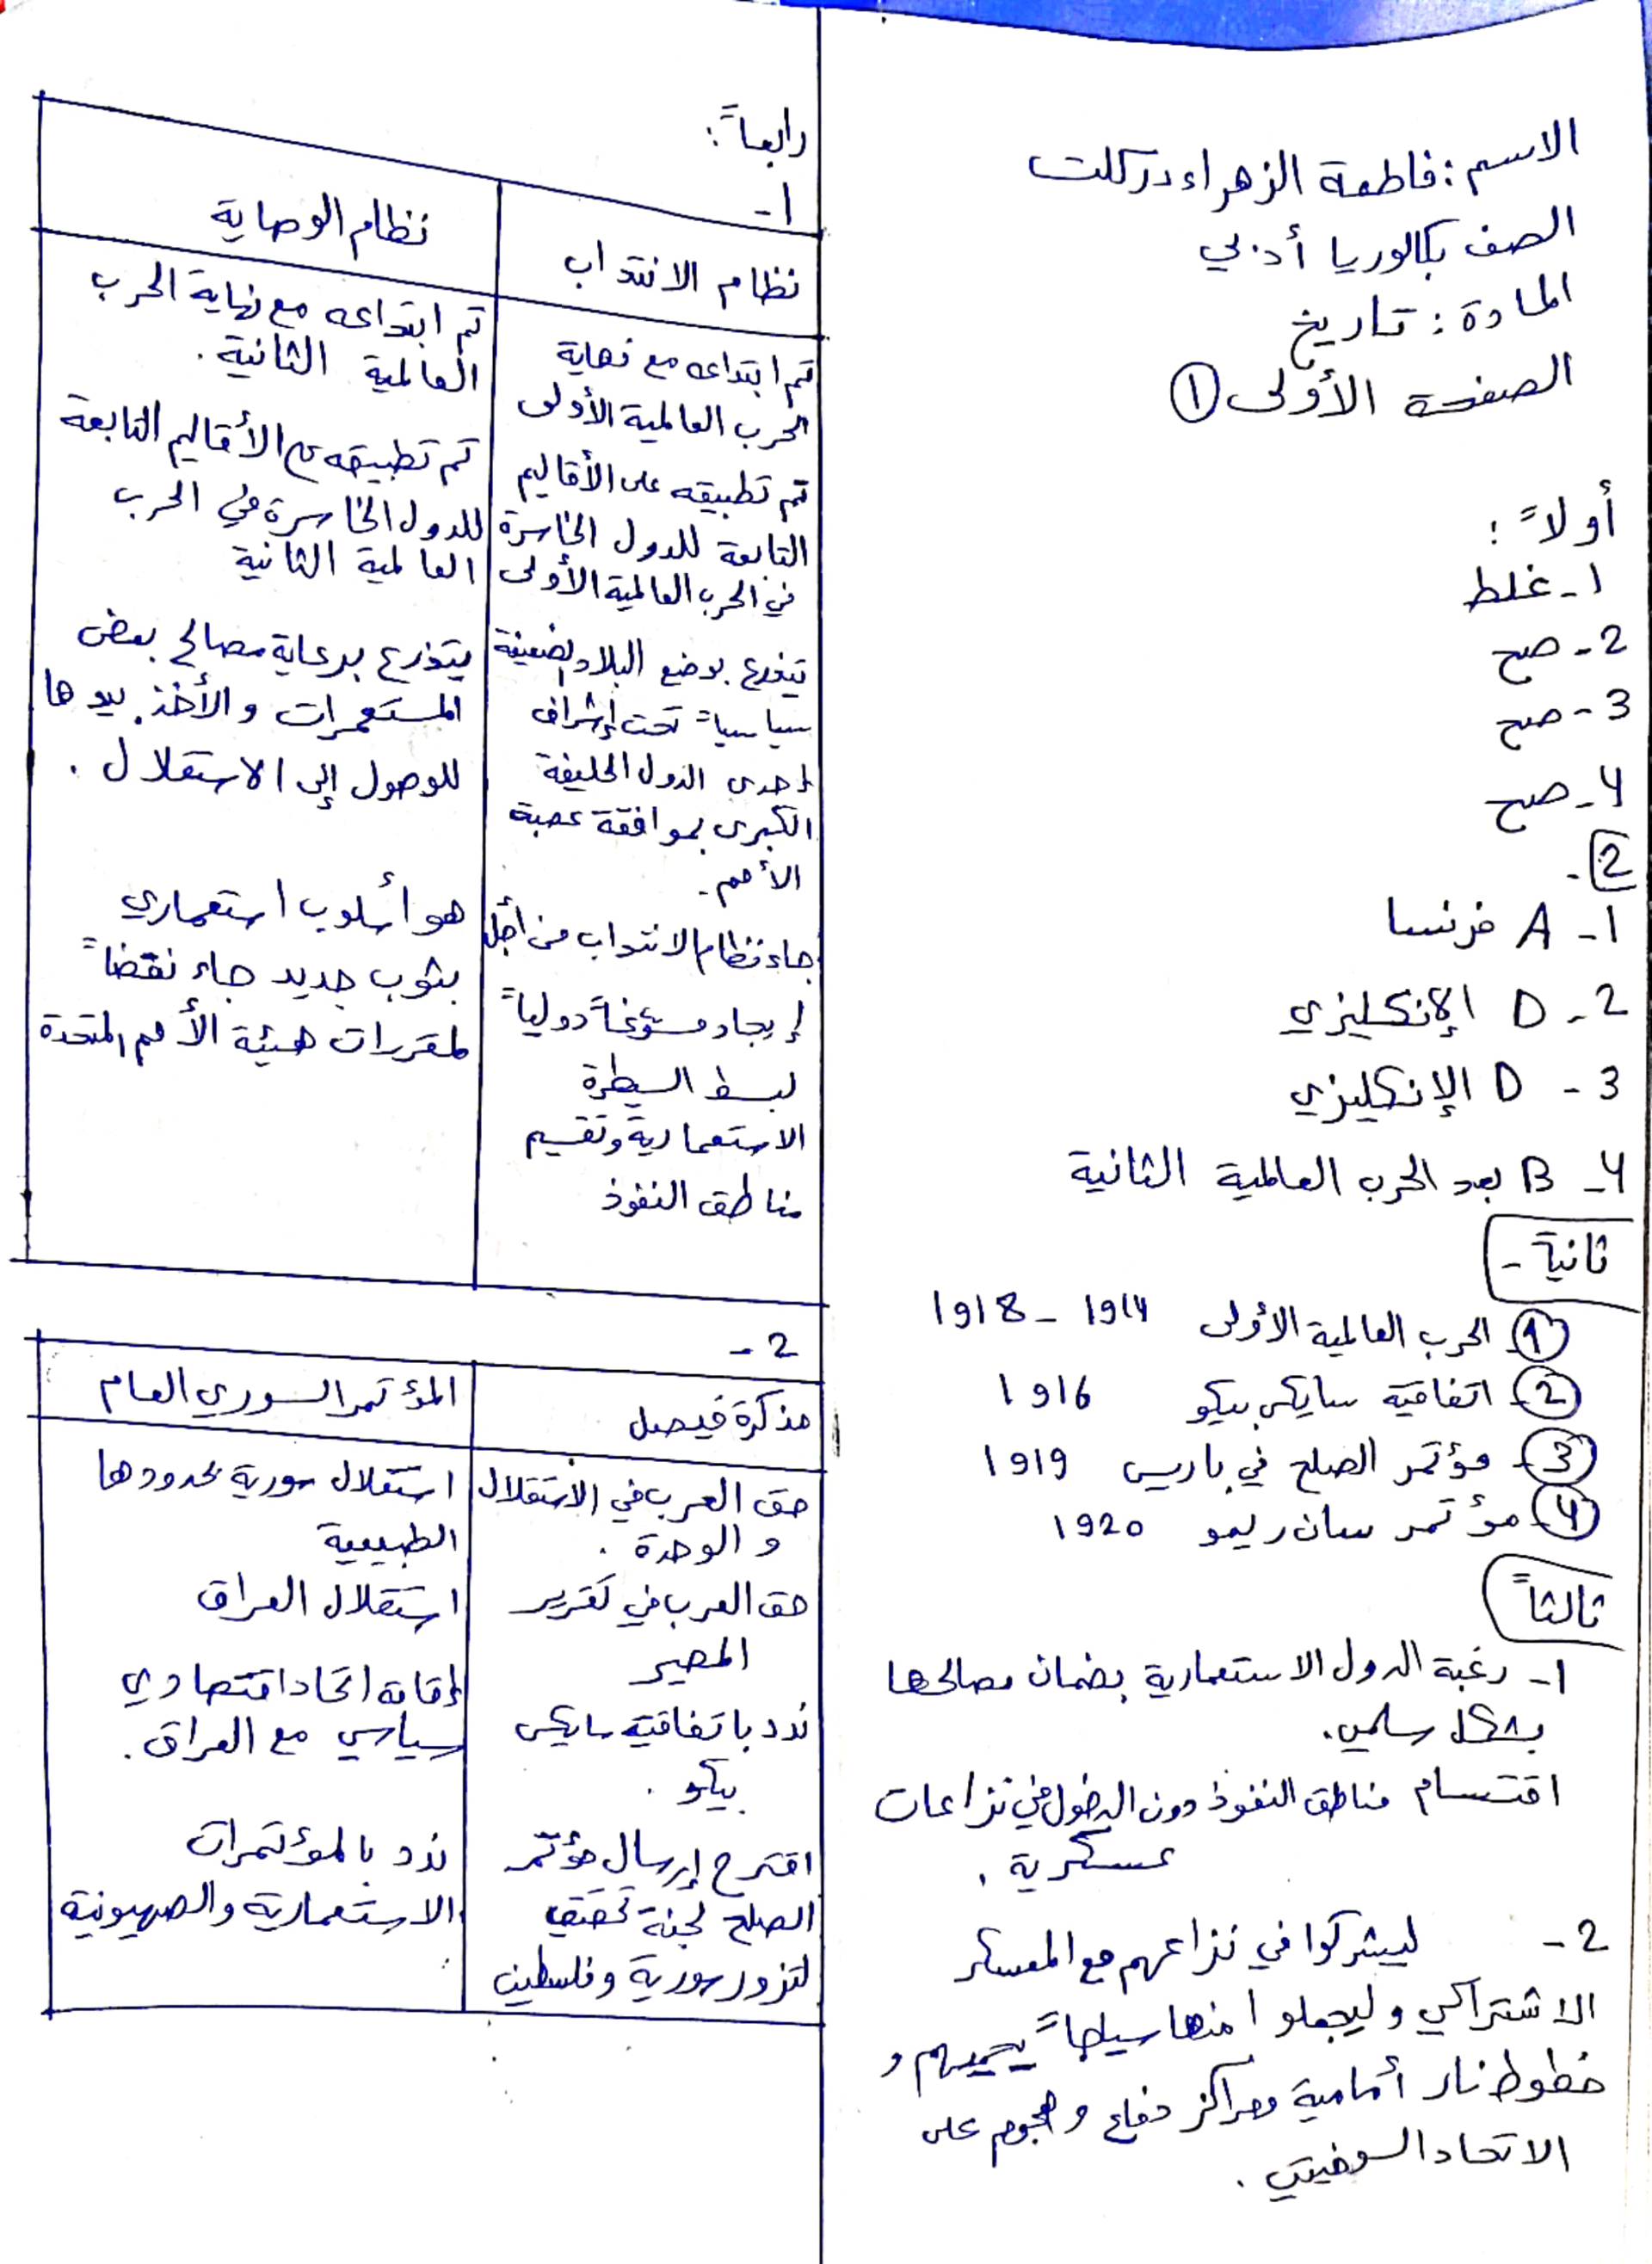 الاسم : فاطمة الزهراء دركلت
الصف بكالوريا أدبي
المادة : تاريخ
الصفحة الأولى ①
أولاً :
1- غلط
2- صح
3- صح
4- صح
2-
1- A فرنسا
2- D الإنكليزي
3- D الإنكليزي
4- B بعد الحرب العالمية الثانية
ثانياً -
① الحرب العالمية الأولى 1914 - 1918
② اتفاقية سايكس بيكو 1916
③ مؤتمر الصلح في باريس 1919
④ مؤتمر سان ريمو 1920
ثالثاً
1- رغبة الدول الاستعمارية بضمان مصالحها
بشكل سلمي.
اقتسام مناطق النفوذ دون الدخول في نزاعات
عسكرية .
2- ليشركوا في نزاعهم مع المعسكر
الاشتراكي وليجعلوا منها سياجاً يحميهم و
خطوط نار أمامية ومراكز دفاع وهجوم على
الاتحاد السوفيتي .
رابعاً :
1-
نظام الانتداب
تم ابتداعه مع نهاية
الحرب العالمية الأولى
تم تطبيقه على الأقاليم
التابعة للدول الخاسرة
في الحرب العالمية الأولى
يتذرع بوضع البلاد الضعيفة
سياسياً تحت إشراف
إحدى الدول الحليفة
الكبرى بموافقة عصبة
الأمم .
جاء نظام الانتداب من أجل
إيجاد مسوّغاً دولياً
لبسط السيطرة
الاستعمارية وتقسيم
مناطق النفوذ
نظام الوصاية
تم ابتداعه مع نهاية الحرب
العالمية الثانية .
تم تطبيقه على الأقاليم التابعة
للدول الخاسرة في الحرب
العالمية الثانية
يتذرع برعاية مصالح بعض
المستعمرات والأخذ بيدها
للوصول إلى الاستقلال .
هو أسلوب استعماري
بثوب جديد جاء نقضاً
لمقررات هيئة الأمم المتحدة
2-
مذكرة فيصل
حق العرب في الاستقلال
و الوحدة .
حق العرب في تقرير
المصير
ندد باتفاقية سايكس
بيكو .
اقترح إرسال مؤتمر
الصلح لجنة تحقيق
لتزور سورية وفلسطين
المؤتمر السوري العام
استقلال سورية بحدودها
الطبيعية
استقلال العراق
إقامة اتحاد اقتصادي
سياسي مع العراق .
ندد بالمؤتمرات
الاستعمارية والصهيونية